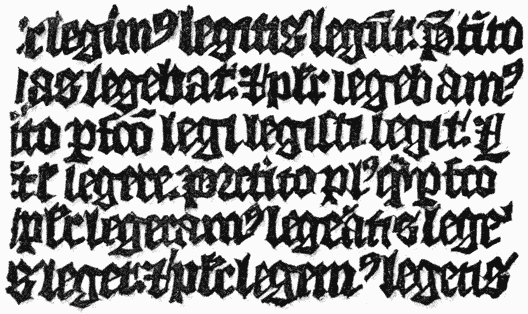 legim9 legitis legūt. p̄tito
as legebat. ⁊pl̄r legebam9
ito pfcō legi legisti legit. ⁊
legere. prtito pl9q̄pfco
pl̄r legeram9 legeātis lege
s leget. ⁊pl̄r legem9 legetis